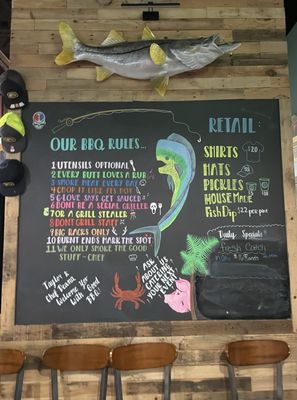 OUR BBQ RULES...
1 UTENSILS OPTIONAL
2 EVERY BUTT LOVES A RUB
3 SMOKE MEAT EVERY DAY
4 CHOP IT LIKE ITS HOT
5 G LOVE SAYS GET SAUCED
6 DON'T BE A SERIAL GRILLER
7 OR A GRILL STEALER
8 DON'T GRILL STIFF
9 BIG RACKS ONLY
10 BURNT ENDS MARK THE SPOT
11 WE ONLY SMOKE THE GOOD
STUFF - CHEF
Taylor &
Welcome You
With Good
BBQ
ASK
ABOUT US
CATERING
YOUR NEXT
EVENT
RETAIL:
SHIRTS
$20
HATS
PICKLES
HOUSE MADE
Fish Dip
Daily Specials
fresh Catch